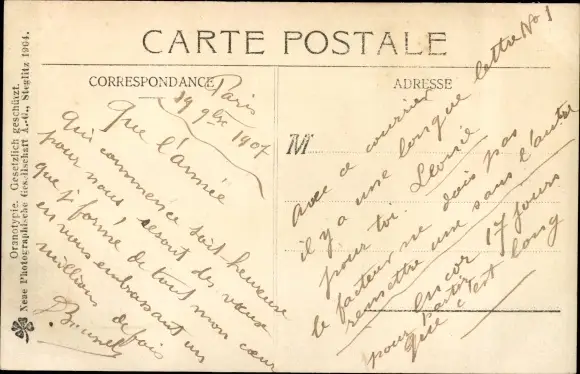 CARTE POSTALE
CORRESPONDANCE
ADRESSE
Paris
19 9bre 1907
Que l'année
qui commence soit heureuse
pour nous, ce sont des vœux
que j formé de tout mon cœur
en vous embrassant un
millions de fois
D. Brunel
M
lettre No 1
avec ce courrier
il y a une longue
pour toi Leonie
le facteur ne dois pas
remettre une sans l'autre
encor 17 jours
pour partir
que c'est long
Oranotypie. Gesetzlich geschützt.
Neue Photographische Gesellschaft A.-G., Steglitz 1904.